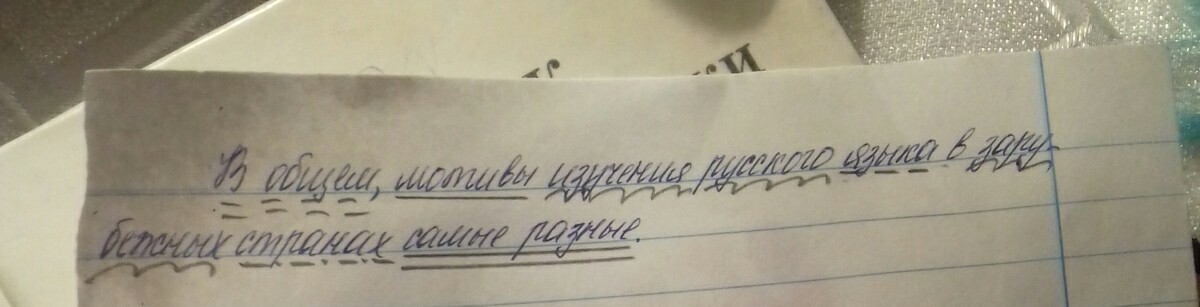 В общем, мотивы изучения русского языка в зару-
бежных странах самые разные.